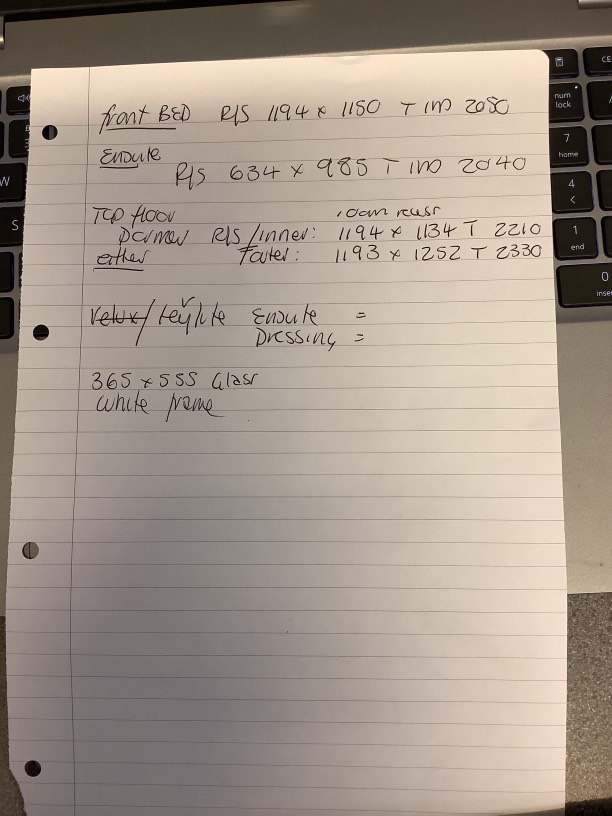 front BED R/S 1194 x 1150 T IM 2050
Ensuite
R/S 634 x 985 T IM 2040
TOP floor
Dormer R/S/inner: 1194 x 1134 T 2210
either outer: 1193 x 1252 T 2330
Velux/ Keylite Ensuite =
Dressing =
365 x 555 Glass
white frame
num lock
7 home
4
1 end
0 inse
CE
W
S